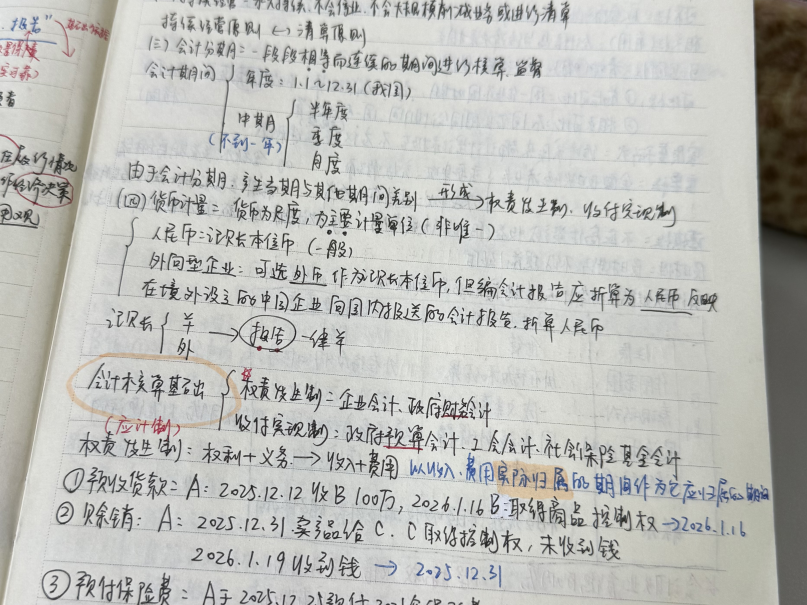 报告"
持续经营原则 ←→ 清算原则
(三)会计分期:一段段相等而连续的期间进行核算、监督
会计期间 年度:1.1~12.31(我国)
中期 半年度
(不到一年) 季度
月度
由于会计分期,产生当期与其他期间差别 形成→ 权责发生制、收付实现制
(四)货币计量:货币为尺度,为主要计量单位(非唯一)
人民币:记账本位币(一般)
外向型企业:可选外币作为记账本位币,但编会计报告应折算为人民币反映
在境外设立的中国企业向国内报送的会计报告,折算人民币
记账 羊 → 报告 一律羊
外
会计核算基础 权责发生制:企业会计、政府财务会计
(应计制) 收付实现制:政府预算会计、工会会计、社会保险基金会计
权责发生制:权利+义务→收入+费用 以收入、费用实际归属的期间作为它应归属的期间
①预收货款:A:2025.12.12收B 100万,2026.1.16 B取得商品控制权→2026.1.16
②赊销:A:2025.12.31卖品给C,C取得控制权,未收到钱
2026.1.19收到钱 → 2025.12.31
③预付保险费:A于2025.12.25预付